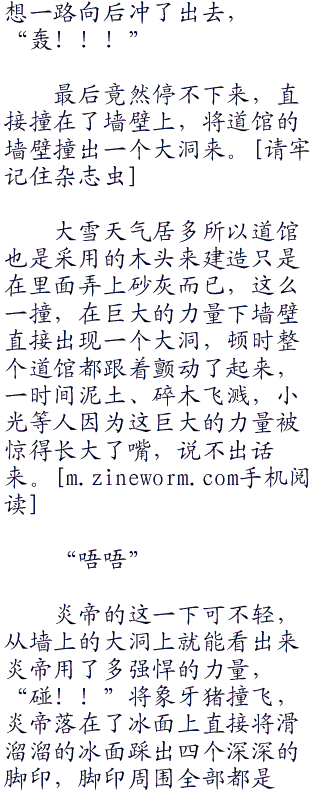 想一路向后冲了出去，
“轰！！！”
最后竟然停不下来，直
接撞在了墙壁上，将道馆的
墙壁撞出一个大洞来。[请牢
记住杂志虫]
大雪天气居多所以道馆
也是采用的木头来建造只是
在里面弄上砂灰而已，这么
一撞，在巨大的力量下墙壁
直接出现一个大洞，顿时整
个道馆都跟着颤动了起来，
一时间泥土、碎木飞溅，小
光等人因为这巨大的力量被
惊得长大了嘴，说不出话
来。[m.zineworm.com手机阅
读]
“唔唔”
炎帝的这一下可不轻，
从墙上的大洞上就能看出来
炎帝用了多强悍的力量，
“碰！！”将象牙猪撞飞，
炎帝落在了冰面上直接将滑
溜溜的冰面踩出四个深深的
脚印，脚印周围全部都是